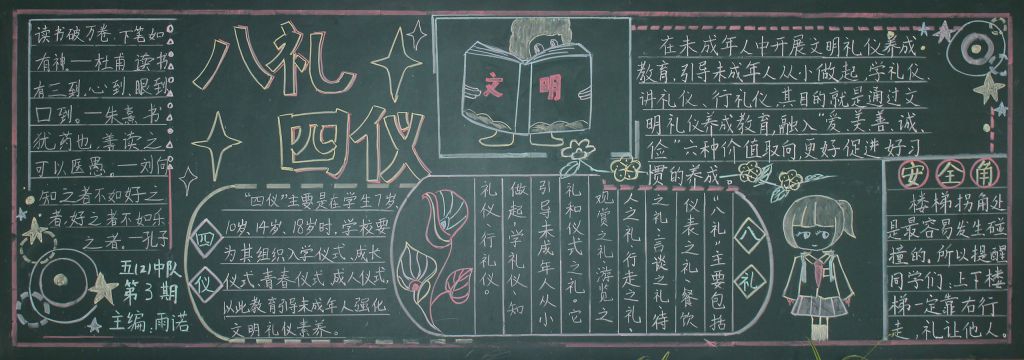 读书破万卷，下笔如
有神。—杜甫 读书
有三到，心到，眼到
口到。—朱熹 书
犹药也，善读之
可以医愚。—刘向
知之者不如好之
者，好之者不如乐
之者。—孔子
五(2)中队
第3期
主编：雨诺
八礼
四仪
文明
在未成年人中开展文明礼仪养成
教育，引导未成年人从小做起，学礼仪、
讲礼仪、行礼仪，其目的就是通过文
明礼仪养成教育，融入“爱、美、善、诚、
俭”六种价值取向，更好促进好习
惯的养成。
四仪
“四仪”主要是在学生7岁、
10岁、14岁、18岁时，学校要
为其组织入学仪式、成长
仪式、青春仪式、成人仪式，
以此教育引导未成年人强化
文明礼仪素养。
八礼
“八礼”主要包括
仪表之礼、餐饮
之礼、言谈之礼、待
人之礼、行走之礼、
观赏之礼、游览之
礼和仪式之礼。它
引导未成年人从小
做起，学礼仪、知
礼仪、行礼仪。
安全角
楼梯拐角处
是最容易发生碰
撞的，所以提醒
同学们：上下楼
梯一定靠右行
走，礼让他人。